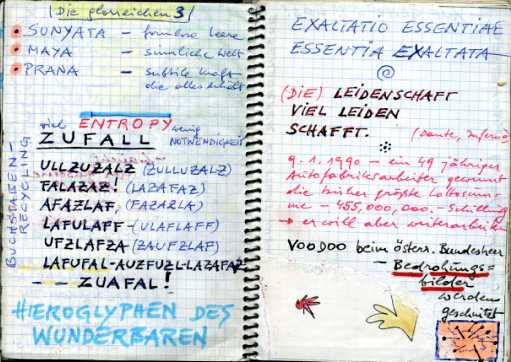 Die glorreichen 3
SUNYATA – formlose Leere
MAYA – sinnliche Welt
PRANA – subtile Kraft
die alles erhält
viel ENTROPY wenig
NOTWENDIGKEIT
ZUFALL
BUCHSTABEN-
RECYCLING
ULLZUZALZ (ZULLUZALZ)
FALAZAZ! (LAZAFAZ)
AFAZLAF, (FAZARLA)
LAFULAFF-(ULAFLAFF)
UFZLAFZA (ZAUFZLAF)
LAFUFAL-AUZFUZL-LAZAFAZ
– – ZUAFAL!
HIEROGLYPHEN DES
WUNDERBAREN
EXALTATIO ESSENTIAE
ESSENTIA EXALTATA
(DIE) LEIDENSCHAFT
VIEL LEIDEN
SCHAFFT. (Dante, Inferno)
9.1.1990 – ein 49 jähriger
Autofabriksarbeiter gewinnt
die bisher größte Lottosum-
me – 455,000,000.– Schilling
→ er will aber weiterarbeiten
VOODOO beim österr. Bundesheer
– Bedrohungs=
bilder
werden